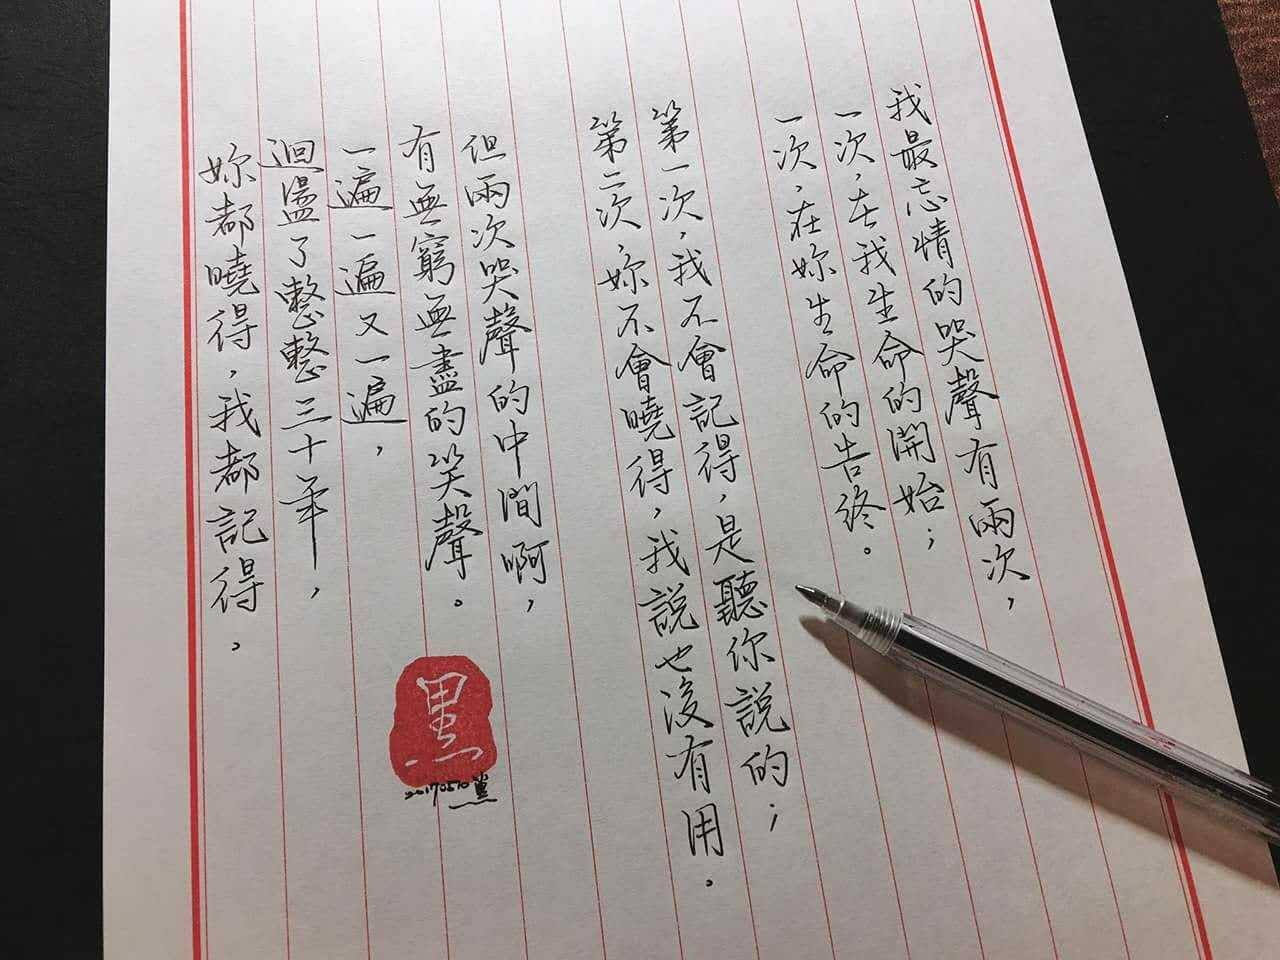 我最忘情的哭聲有兩次，
一次，在我生命的開始；
一次，在妳生命的告終。
第一次，我不會記得，是聽你說的；
第二次，妳不會曉得，我說也沒有用。
但兩次哭聲的中間啊，
有無窮無盡的笑聲。
一遍一遍又一遍，
迴盪了整整三十年，
妳都曉得，我都記得。
黑
20170510黨